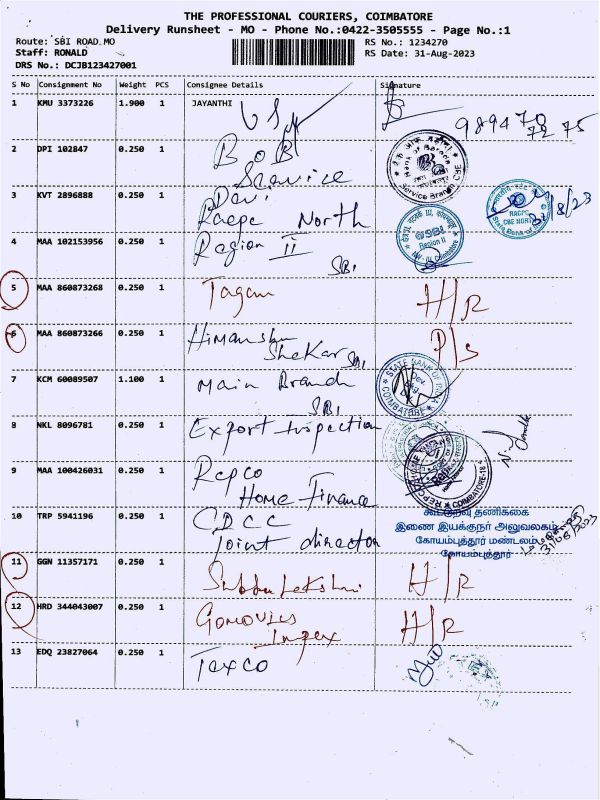 THE PROFESSIONAL COURIERS, COIMBATORE
Delivery Runsheet - MO - Phone No.:0422-3505555 - Page No.:1
Route: SBI ROAD MO RS No.: 1234270
Staff: RONALD RS Date: 31-Aug-2023
DRS No.: DCJB123427001
S No Consignment No Weight PCS Consignee Details Signature
1 KMU 3373226 1.900 1 JAYANTHI
989470
72 75
2 DPI 102847 0.250 1 BOB
Service
3 KVT 2896888 0.250 1 Devi
Racpc North 31/8/23
4 MAA 102153956 0.250 1 Region II
SBI
5 MAA 860873268 0.250 1 Tagam H/R
6 MAA 860873266 0.250 1 Himanshu P/S
Shekar SBI
7 KCM 60089507 1.100 1 Main Branch
SBI
STATE BANK OF INDIA
COIMBATORE
8 NKL 8096781 0.250 1 Export Inspection
9 MAA 100426031 0.250 1 Repco
Home Finance
10 TRP 5941196 0.250 1 CDCC
Joint director
கூட்டுறவு தணிக்கை
இணை இயக்குநர் அலுவலகம்
கோயம்புத்தூர் மண்டலம்
கோயம்புத்தூர்
31/08/2023
11 GGN 11357171 0.250 1 H/R
12 HRD 344043007 0.250 1 Gomovies H/R
Impex
13 EDQ 23827064 0.250 1 Texco